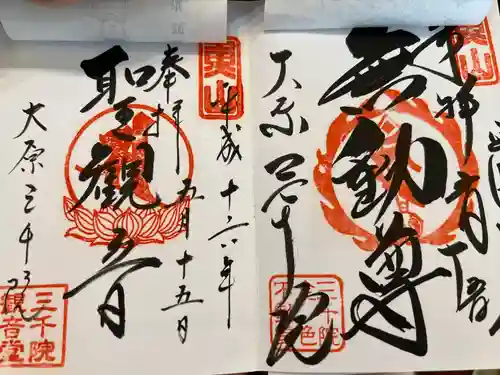 奉拝
無動尊
大原三千院
平成十六年
五月十五日
奉拝
聖観音
大原三千院
三千院
観音堂